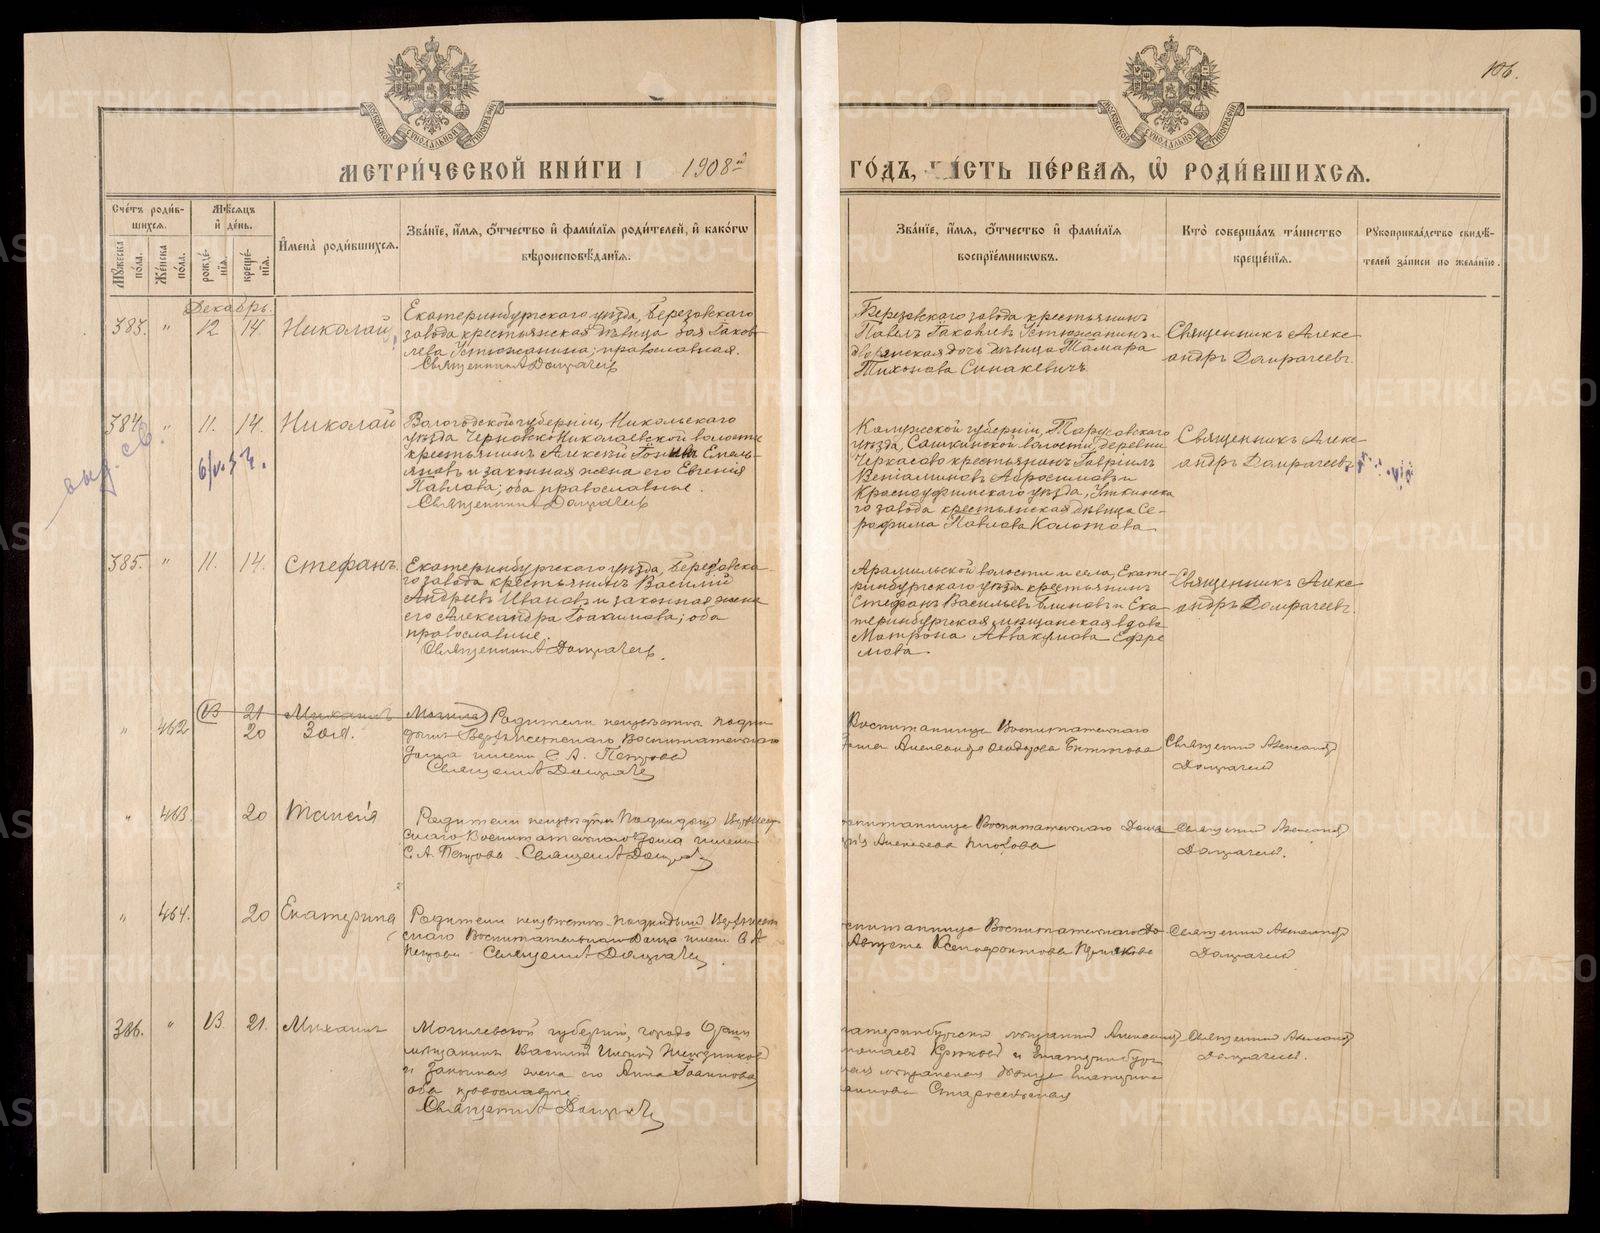 106.
МЕТРИ́ЧЕСКОЙ КНИ́ГИ 1908й
ГО́ДЪ, ЧА́СТЬ ПЕ́РВАЯ, Ѡ҆ РОДИ́ВШИХСЯ.
Сче́тъ роди́в-
шихся.
Мꙋ́жеска по́ла.
Же́нска по́ла.
Мѣ́сяцъ и҆ де́нь.
рожде́-
нїя.
креще́-
нїя.
И҆мена̀ роди́вшихся.
Зва́нїе, и҆́мя, ѻ҆́тчество и҆ фами́лїя роди́телей, и҆ како́гѡ
вѣроисповѣ́данїя.
Зва́нїе, и҆́мя, ѻ҆́тчество и҆ фами́лїя
воспрїе́мникѡвъ.
Кто̀ соверша́лъ та́инство
креще́нїя.
Рꙋкоприкла́дство свидѣ́-
телей за́писи по жела́нїю.
Декабрь.
383. " 12 14 Николай
Екатеринбургскаго уѣзда, Березовскаго
завода крестьянская дѣвица Зоя Іаков-
лева Устюжанина; православная.
Священникъ Домрачевъ
Березовскаго завода крестьянинъ
Павелъ Іаковлевъ Устюжанинъ и
дворянская дочь дѣвица Тамара
Тихонова Синакевичъ.
Священникъ Алекс-
андръ Домрачевъ.
384. " 11. 14. Николай
выд. св.
Вологодской губерніи, Никольскаго
уѣзда Черновско-Николаевской волости
крестьянинъ Алексій Емель-
яновъ и законная жена его Евгенія
Павлова; оба православные.
Священникъ Домрачевъ
Калужской губерніи, Тарусовскаго
уѣзда, Сашкинской волости, деревни
Черкасово крестьянинъ Гавріилъ
Веніаминовъ Абросимовъ и
Красноуфимскаго уѣзда, Уткинска-
го завода крестьянская дѣвица Се-
рафима Павлова Колотова.
Священникъ Алекс-
андръ Домрачевъ
385. " 11. 14. Стефанъ.
Екатеринбургскаго уѣзда, Березовска-
го завода крестьянинъ Василій
Андреевъ Ивановъ и законная жена
его Александра Іоакимова; оба
православные.
Священникъ Домрачевъ.
Арамильской волости и села, Екате-
ринбургскаго уѣзда крестьянинъ
Стефанъ Васильевъ Блиновъ и Ека-
теринбургская мѣщанская вдова
Матрона Аввакумова Ефре-
мова.
Священникъ Алекс-
андръ Домрачевъ.
13 21 Михаилъ Могилев
" 462 20 Зоя.
Родители неизвѣстны подки-
дышъ Верхъисетскаго Воспитательнаго
Дома имени С. А. Петрова
Священникъ Домрачевъ
Воспитанница Воспитательнаго
Дома Александра Феодорова
Священникъ Александръ
Домрачевъ
" 463. 20 Таисія
Родители неизвѣстны Подкидышъ Верхъисет-
скаго Воспитательнаго Дома имени
С. А. Петрова Священникъ Домрачевъ
воспитанница Воспитательнаго Дома
Алексеева
Священникъ Александръ
Домрачевъ.
" 464. 20 Екатерина
Родители неизвѣстны подкидышъ Верхъисет-
скаго Воспитательнаго Дома имени С А
Петрова Священникъ Домрачевъ
воспитанница Воспитательнаго До-
Августа Ксенофонтова
Священникъ Александръ
Домрачевъ
386. " 13. 21. Михаилъ
Могилевской губерніи, города Орши
мѣщанинъ Василій
и законная жена его Анна Іоаннова
оба православные
Священникъ Домрачевъ
Екатеринбургскій мѣщанинъ Александръ
Крюковъ и Екатеринбург-
ская мѣщанская дѣвица Екатерина
Старосельская
Священникъ Александръ
Домрачевъ.
METRIKI.GASO-URAL.RU